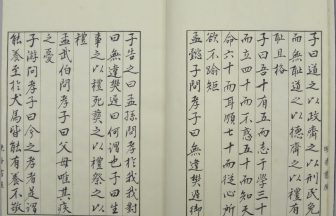 子曰道之以政齊之以刑民免
而無恥道之以德齊之以禮有
恥且格
子曰吾十有五而志于學三十
而立四十而不惑五十而知天
命六十而耳順七十而從心所
欲不踰矩
孟懿子問孝子曰無違樊遲御
子告之曰孟孫問孝於我我對
曰無違樊遲曰何謂也子曰生
事之以禮死葬之以禮祭之以
禮
孟武伯問孝子曰父母唯其疾
之憂
子游問孝子曰今之孝者是謂
能養至於犬馬皆能有養不敬